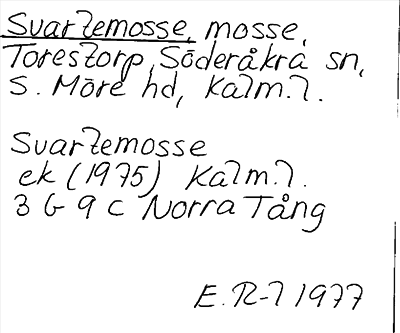 Svartemosse, mosse,
Torestorp, Söderåkra sn,
S. Möre hd, Kalm.l.
Svartemosse
ek (1975) Kalm.l.
3 G 9 c Norra Tång
E. R-l 1977